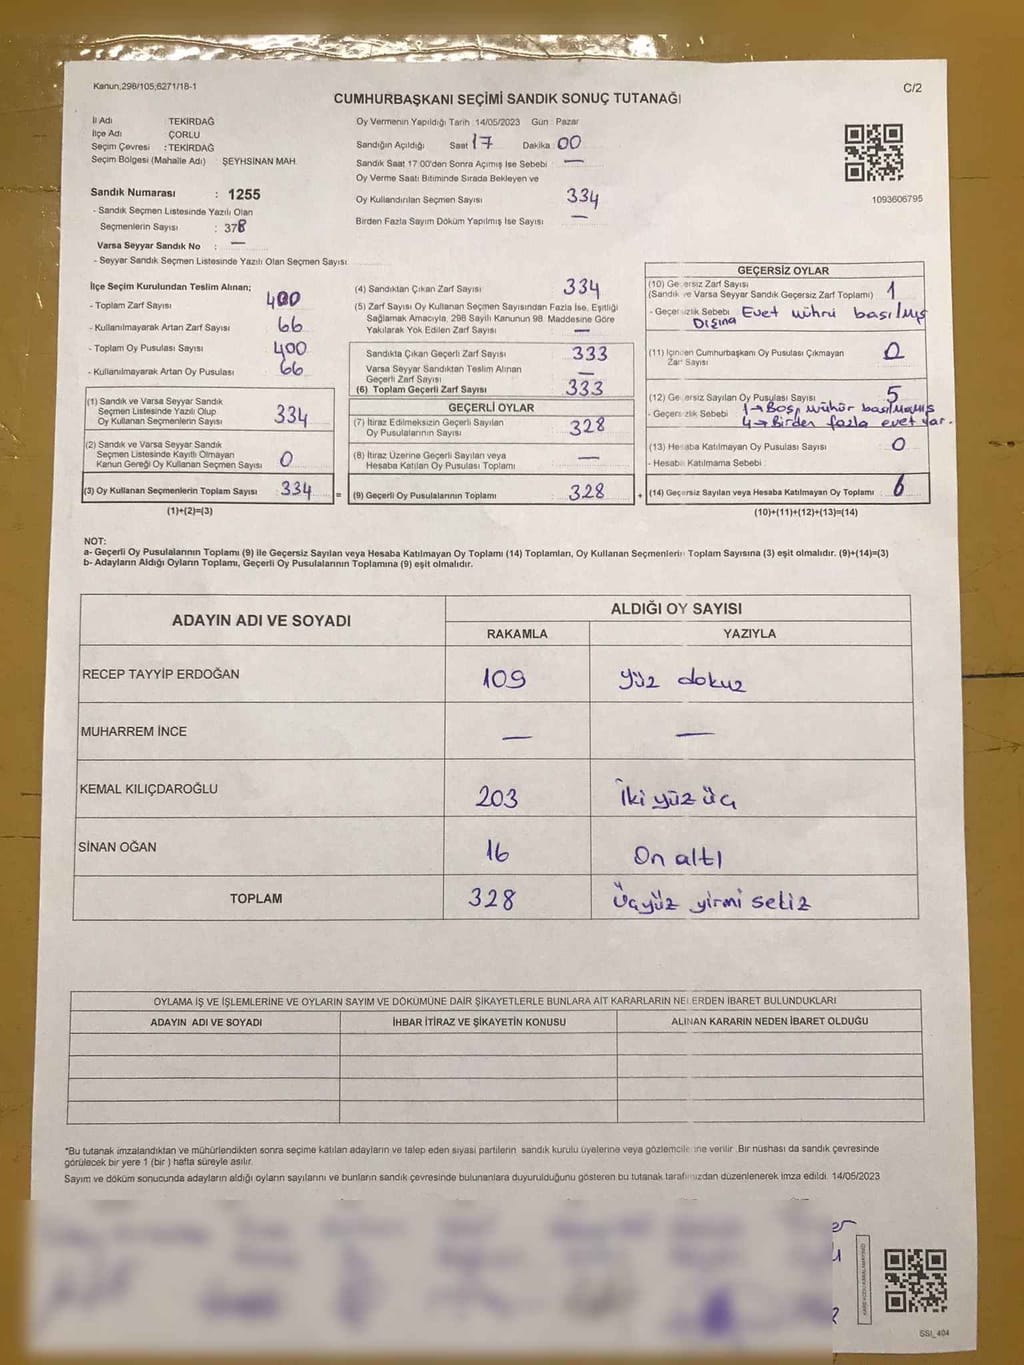 Kanun;298/105;6271/18-1
C/2
CUMHURBAŞKANI SEÇİMİ SANDIK SONUÇ TUTANAĞI
İl Adı TEKİRDAĞ
İlçe Adı ÇORLU
Seçim Çevresi : TEKİRDAĞ
Seçim Bölgesi (Mahalle Adı) : ŞEYHSİNAN MAH.
Sandık Numarası : 1255
- Sandık Seçmen Listesinde Yazılı Olan
Seçmenlerin Sayısı : 378
Varsa Seyyar Sandık No : —
- Seyyar Sandık Seçmen Listesinde Yazılı Olan Seçmen Sayısı:
Oy Vermenin Yapıldığı Tarih :14/05/2023 Gün : Pazar
Sandığın Açıldığı Saat 17 Dakika 00
Sandık Saat 17:00'den Sonra Açımış İse Sebebi —
Oy Verme Saati Bitiminde Sırada Bekleyen ve
Oy Kullandırılan Seçmen Sayısı 334
Birden Fazla Sayım Döküm Yapılmış İse Sayısı —
1093606795
İlçe Seçim Kurulundan Teslim Alınan;
- Toplam Zarf Sayısı 400
- Kullanılmayarak Artan Zarf Sayısı 66
- Toplam Oy Pusulası Sayısı 400
- Kullanılmayarak Artan Oy Pusulası 66
(1) Sandık ve Varsa Seyyar Sandık
Seçmen Listesinde Yazılı Olup
Oy Kullanan Seçmenlerin Sayısı 334
(2) Sandık ve Varsa Seyyar Sandık
Seçmen Listesinde Kayıtlı Olmayan
Kanun Gereği Oy Kullanan Seçmen Sayısı 0
(3) Oy Kullanan Seçmenlerin Toplam Sayısı 334 =
(1)+(2)=(3)
(4) Sandıktan Çıkan Zarf Sayısı 334
(5) Zarf Sayısı Oy Kullanan Seçmen Sayısından Fazla İse, Eşitliği
Sağlamak Amacıyla, 298 Sayılı Kanunun 98. Maddesine Göre
Yakılarak Yok Edilen Zarf Sayısı —
Sandıkta Çıkan Geçerli Zarf Sayısı 333
Varsa Seyyar Sandıktan Teslim Alınan
Geçerli Zarf Sayısı —
(6) Toplam Geçerli Zarf Sayısı 333
GEÇERLİ OYLAR
(7) İtiraz Edilmeksizin Geçerli Sayılan
Oy Pusulalarının Sayısı 328
(8) İtiraz Üzerine Geçerli Sayılan veya
Hesaba Katılan Oy Pusulası Toplamı —
(9) Geçerli Oy Pusulalarının Toplamı 328 +
GEÇERSİZ OYLAR
(10) Geçersiz Zarf Sayısı
(Sandık ve Varsa Seyyar Sandık Geçersiz Zarf Toplamı) 1
- Geçersizlik Sebebi Evet mührü basılmış
Dışına
(11) İçinden Cumhurbaşkanı Oy Pusulası Çıkmayan
Zarf Sayısı 0
(12) Geçersiz Sayılan Oy Pusulası Sayısı 5
- Geçersizlik Sebebi 1→Boş, mühür basılmamış
4→Birden fazla evet var.
(13) Hesaba Katılmayan Oy Pusulası Sayısı 0
- Hesaba Katılmama Sebebi :
(14) Geçersiz Sayılan veya Hesaba Katılmayan Oy Toplamı 6
(10)+(11)+(12)+(13)=(14)
NOT:
a- Geçerli Oy Pusulalarının Toplamı (9) ile Geçersiz Sayılan veya Hesaba Katılmayan Oy Toplamı (14) Toplamları, Oy Kullanan Seçmenlerin Toplam Sayısına (3) eşit olmalıdır. (9)+(14)=(3)
b- Adayların Aldığı Oyların Toplamı, Geçerli Oy Pusulalarının Toplamına (9) eşit olmalıdır.
ADAYIN ADI VE SOYADI
ALDIĞI OY SAYISI
RAKAMLA YAZIYLA
RECEP TAYYİP ERDOĞAN 109 yüz dokuz
MUHARREM İNCE — —
KEMAL KILIÇDAROĞLU 203 İki yüz üç
SİNAN OĞAN 16 On altı
TOPLAM 328 Üçyüz yirmi sekiz
OYLAMA İŞ VE İŞLEMLERİNE VE OYLARIN SAYIM VE DÖKÜMÜNE DAİR ŞİKAYETLERLE BUNLARA AİT KARARLARIN NELERDEN İBARET BULUNDUKLARI
ADAYIN ADI VE SOYADI İHBAR İTİRAZ VE ŞİKAYETİN KONUSU ALINAN KARARIN NEDEN İBARET OLDUĞU
*Bu tutanak imzalandıktan ve mühürlendikten sonra seçime katılan adayların ve talep eden siyasi partilerin sandık kurulu üyelerine veya gözlemcilerine verilir .Bir nüshası da sandık çevresinde
görülecek bir yere 1 (bir ) hafta süreyle asılır.
Sayım ve döküm sonucunda adayların aldığı oyların sayılarını ve bunların sandık çevresinde bulunanlara duyurulduğunu gösteren bu tutanak tarafımızdan düzenlenerek imza edildi. 14/05/2023
SSI_404